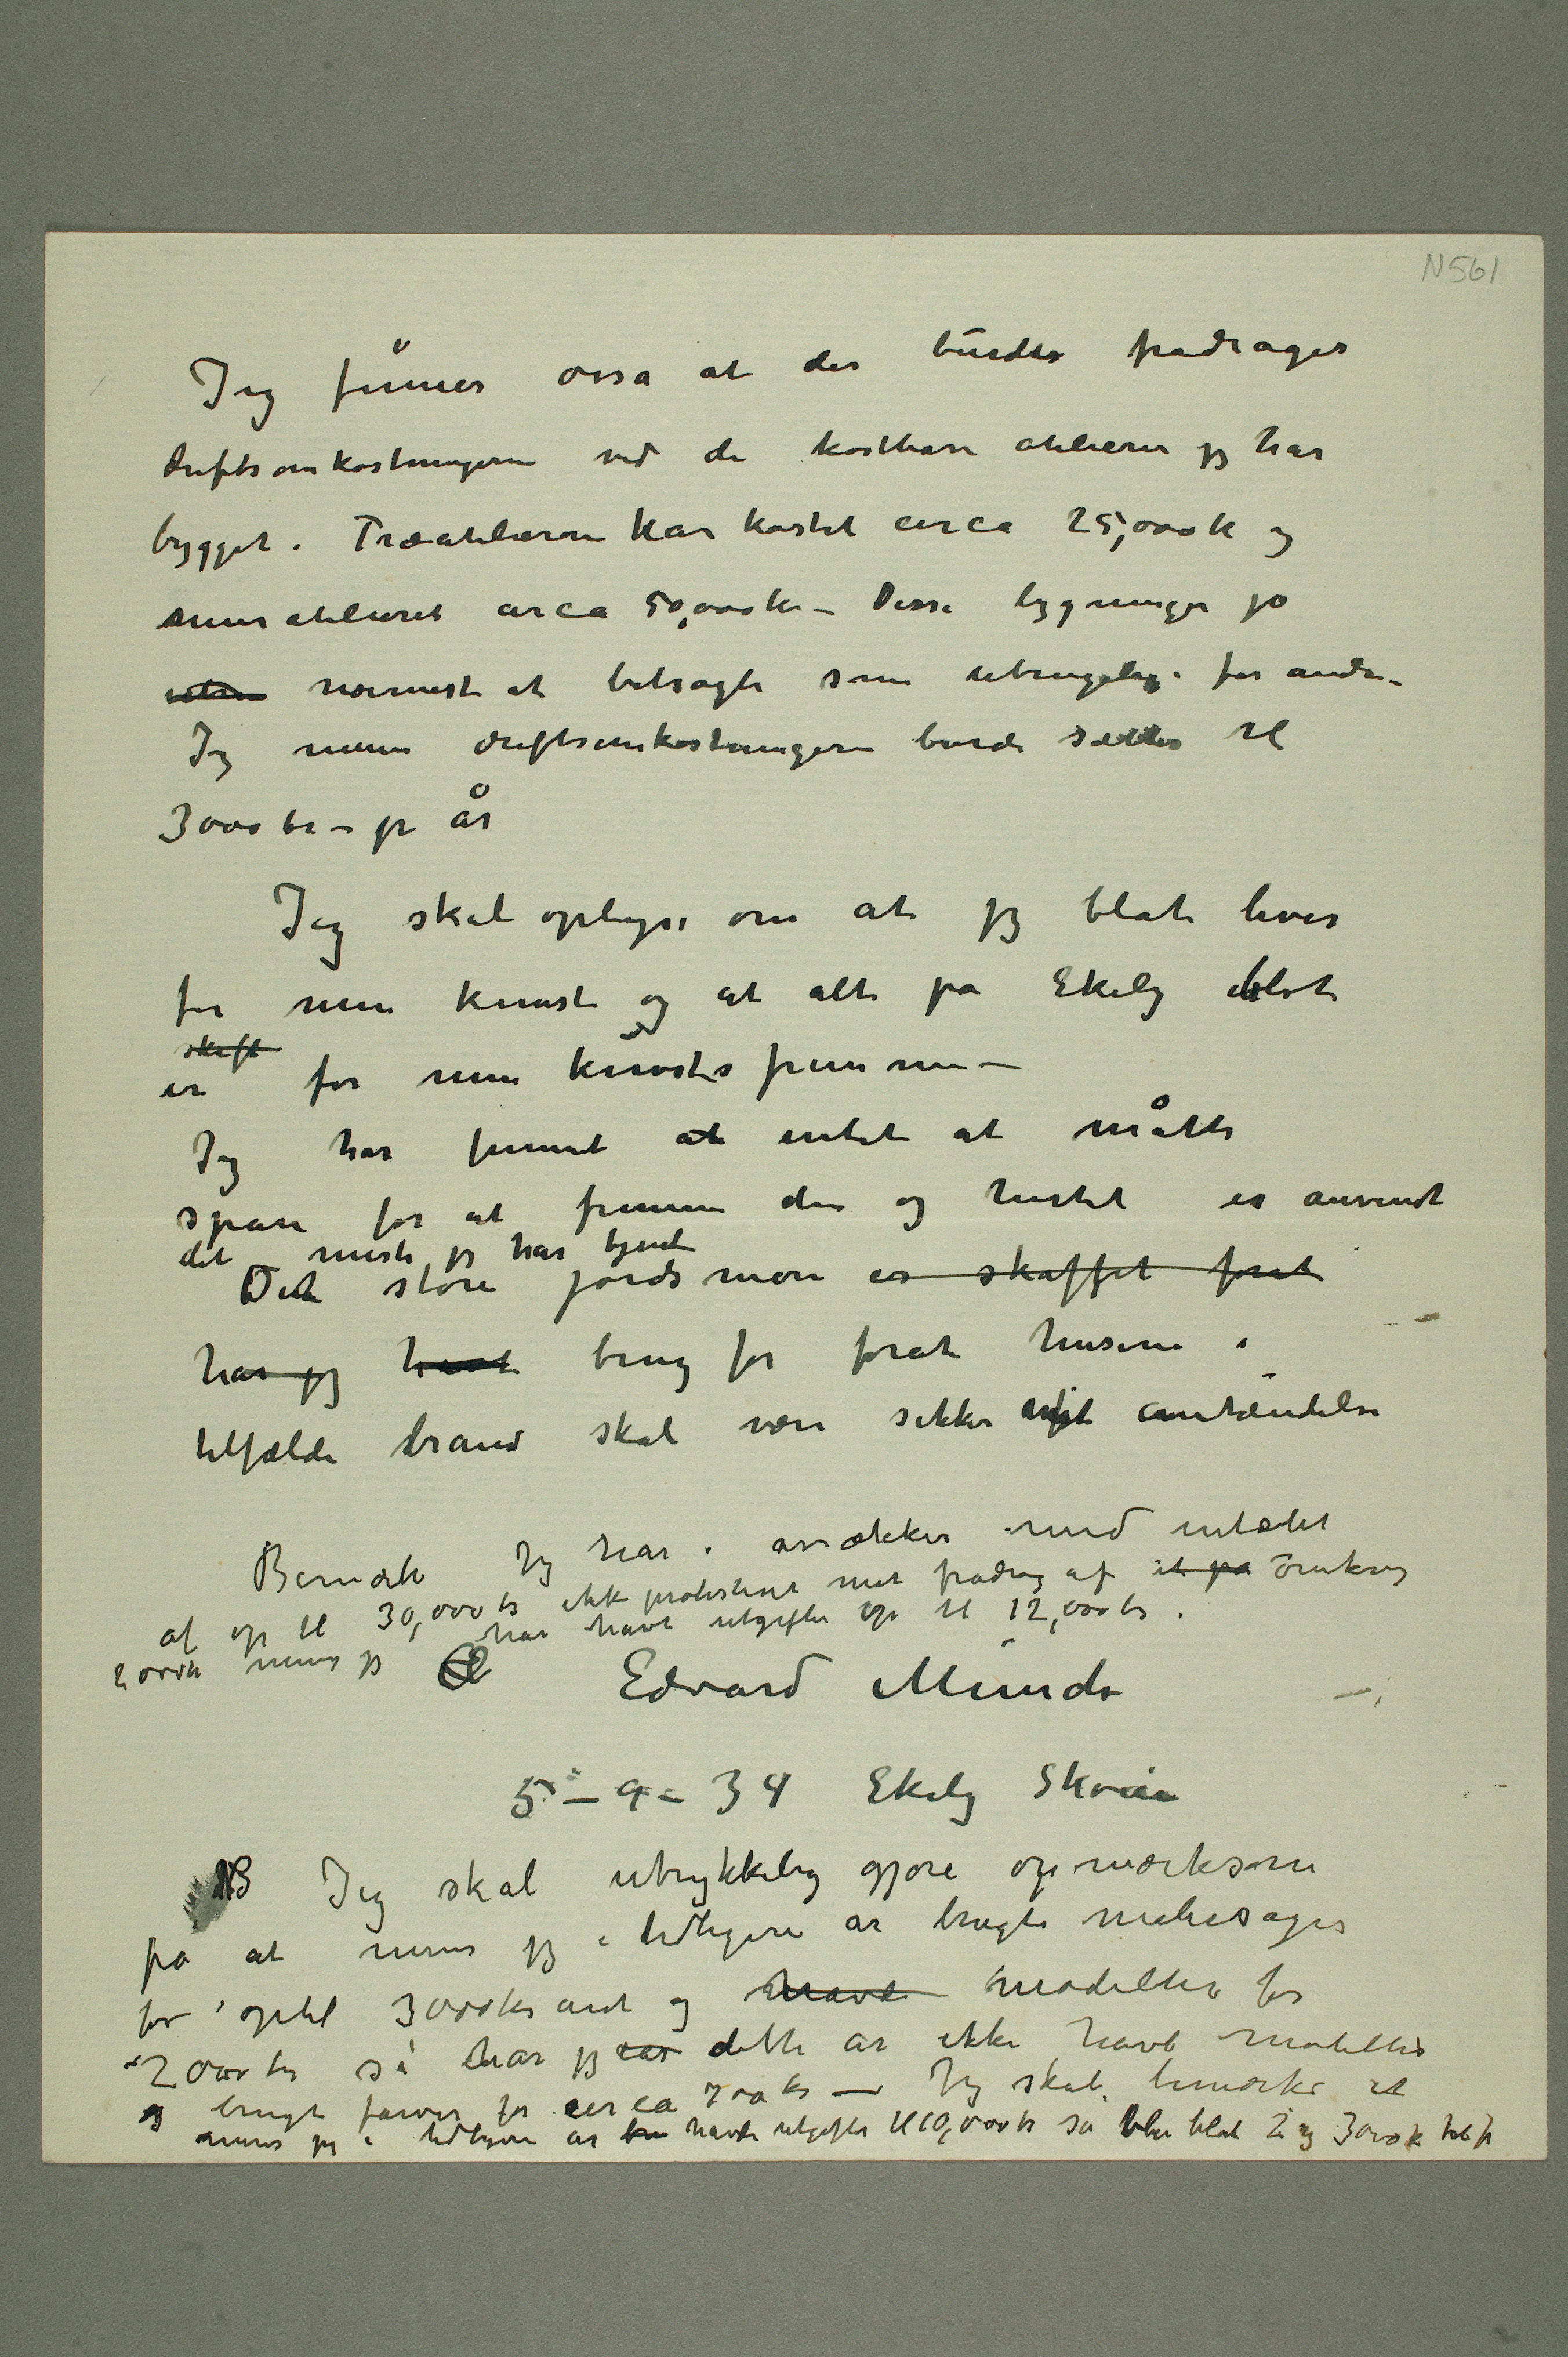 N561
Jeg finner også at der burdes fradrages
driftsomkostningerne ved de kostbare atelierer jeg har
bygget. Træatelierene har kostet circa 25,000 k og
muratelieret circa 50,000 kr – Disse bygninger jo
nærmest at betragte som ubrugelig for andre –
Jeg mener driftsomkostningerne burde sættes til
3000 kr – pr år
Jeg skal oplyse om at jeg blot lever
for min kunst og at alt på Ekely blot
skaft
er for min kunsts fremme –
Jeg har funnet at intet at måtte
spare for at fremme den og hertil er anvendt
det meste jeg har tjent
Det store jordsmon er skaffet forat
har jeg havt brug for forat husene i
tilfælde brand skal være sikker mot antændelse
Bemærk Jeg har i årrækker med intæter
af op til 30,000 kr ikke protesteret mot fradrag af et på omkring
2000 k mens jeg har havt utgifter op til 12,000 kr.
Edvard Munch
5 – 9 – 34 Ekely Skøien
NB Jeg skal utrykkelig gjøre opmærksom
på at mens jeg i tidligere år brugte malesager
for optil 3000 kr året og havde modeller for
2000 kr så har jeg dette år ikke havt modeller
og brugt farver for circa 700 kr – Jeg skal bemærke at
mens jeg i tidligere år havde utgifter til 10,000 kr så blev blot 2 og 3000 k